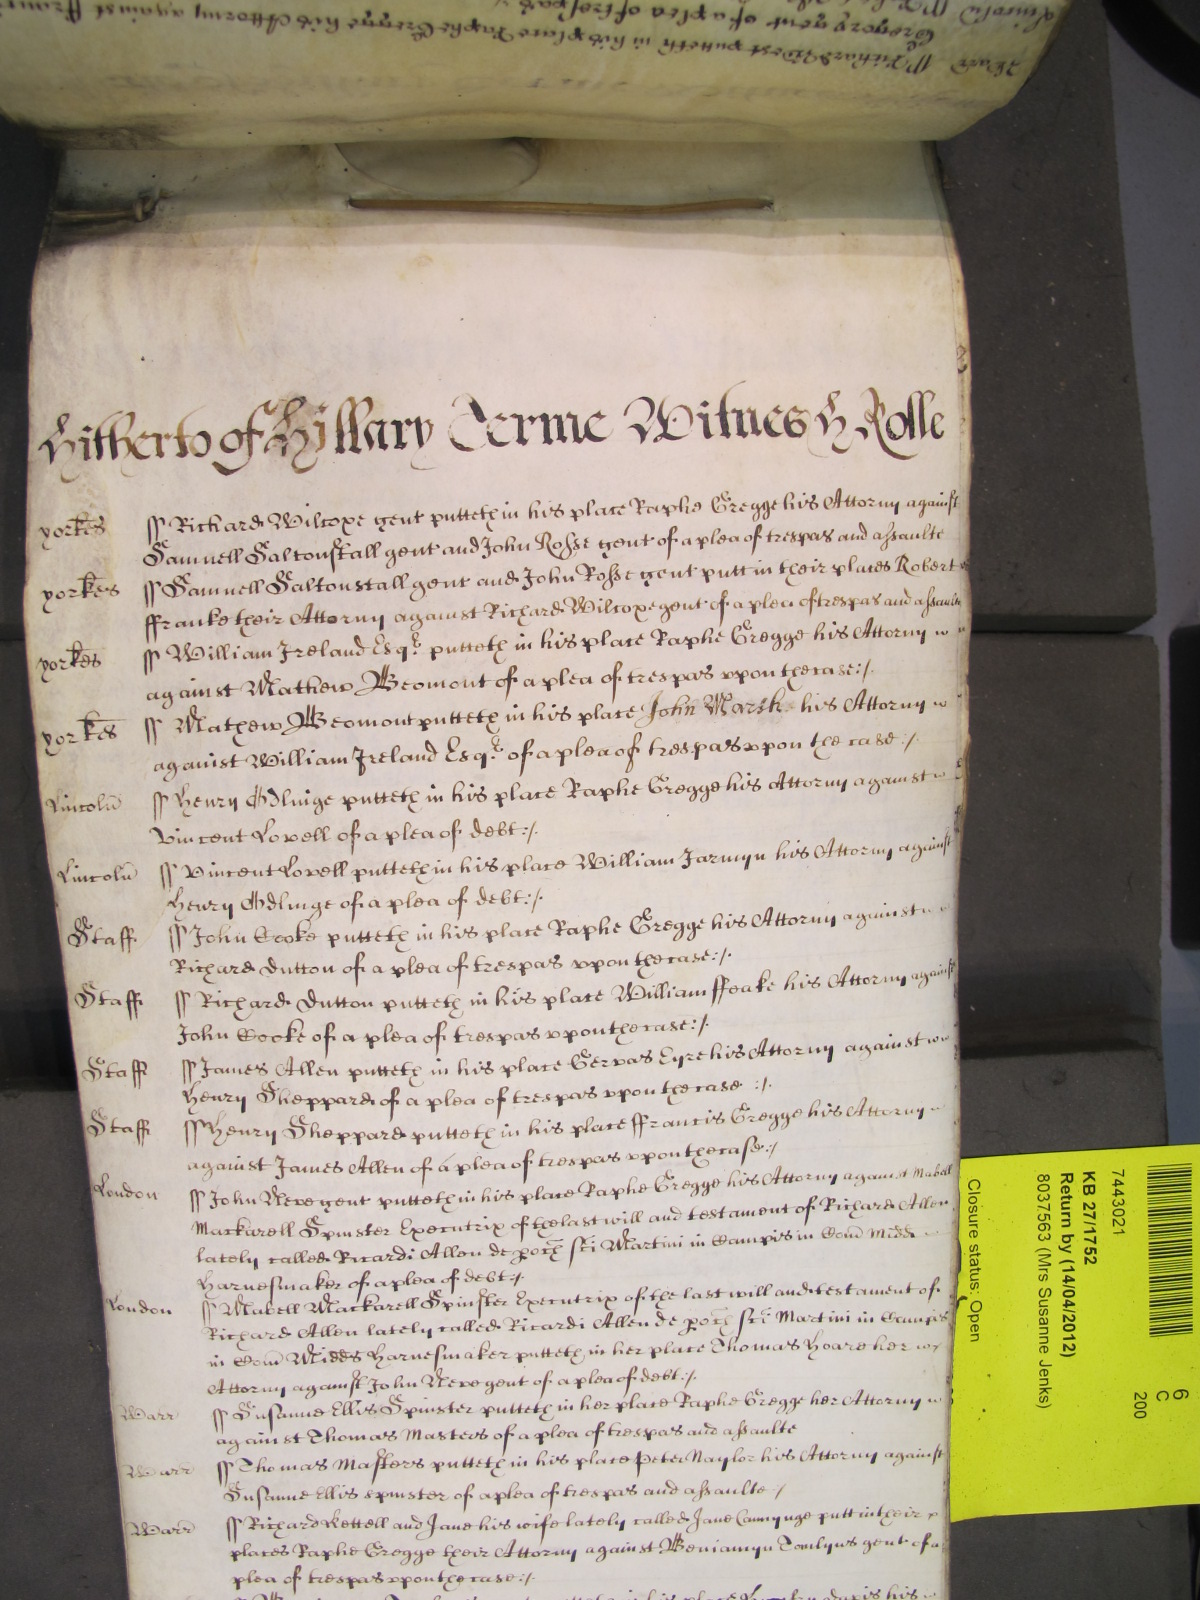 Hitherto of Hillary Terme Witnes H Rolle
yorkes ss Richard Wilcoxe gent putteth in his place Raphe Gregge his Attorny against
Samuell Saltonstall gent and John Rosse gent of a plea of trespas and assaulte
yorkes ss Samuell Saltonstall gent and John Rosse gent putt in their places Robert
ffranke their Attorny against Richard Wilcoxe gent of a plea of trespas and assaulte
yorkes ss William Ireland Esqr putteth in his place Raphe Gregge his Attorny
against Mathew Beomont of a plea of trespas vpon the case:/.
yorkes ss Mathew Beomont putteth in his place John Marsh his Attorny
against William Ireland Esqr of a plea of trespas vpon the case:/.
Lincoln ss Henry Odlinge putteth in his place Raphe Gregge his Attorny against
Vincent Lovell of a plea of debt:/.
Lincoln ss Vincent Lovell putteth in his place William Jarmyn his Attorny against
Henry Odlinge of a plea of debt:/.
Staff ss John Cooke putteth in his place Raphe Gregge his Attorny against
Richard Dutton of a plea of trespas vpon the case:/.
Staff ss Richard Dutton putteth in his place William ffeake his Attorny against
John Cooke of a plea of trespas vpon the case:/.
Staff ss James Allen putteth in his place Gervas Eyre his Attorny against
Henry Sheppard of a plea of trespas vpon the case :/.
Staff ss Henry Sheppard putteth in his place ffrancis Gregge his Attorny
against James Allen of a plea of trespas vpon the case:/
London ss John Neve gent putteth in his place Raphe Gregge his Attorny against Mabell
Mackarell Spinster Executrix of the last will and testament of Richard Allen
lately called Ricardi Allen de poch sci Martini in Campis in Com Midd
Harnesmaker of a plea of debt:/
London ss Mabell Mackarell Spinster Executrix of the last will and testament of
Richard Allen lately called Ricardi Allen de poch sci Martini in Campis
in Com Midds Harnesmaker putteth in her place Thomas Hoare her
Attorny against John Neve gent of a plea of debt:/.
Warr ss Susanne Ellis Spinster putteth in her place Raphe Gregge her Attorny
against Thomas Masters of a plea of trespas and assaulte
Warr ss Thomas Masters putteth in his place Peter Naylor his Attorny against
Susanne Ellis spinster of a plea of trespas and assaulte:/
Warr ss Richard Kettell and Jane his wife lately called Jane Cannynge putt in their
places Raphe Gregge their Attorny against Beniamyn Tomlyns gent of a
plea of trespas vpon the case:/.
7443021
KB 27/1752
Return by (14/04/2012)
8037563 (Mrs Susanne Jenks)
Closure status: Open
6
C
200